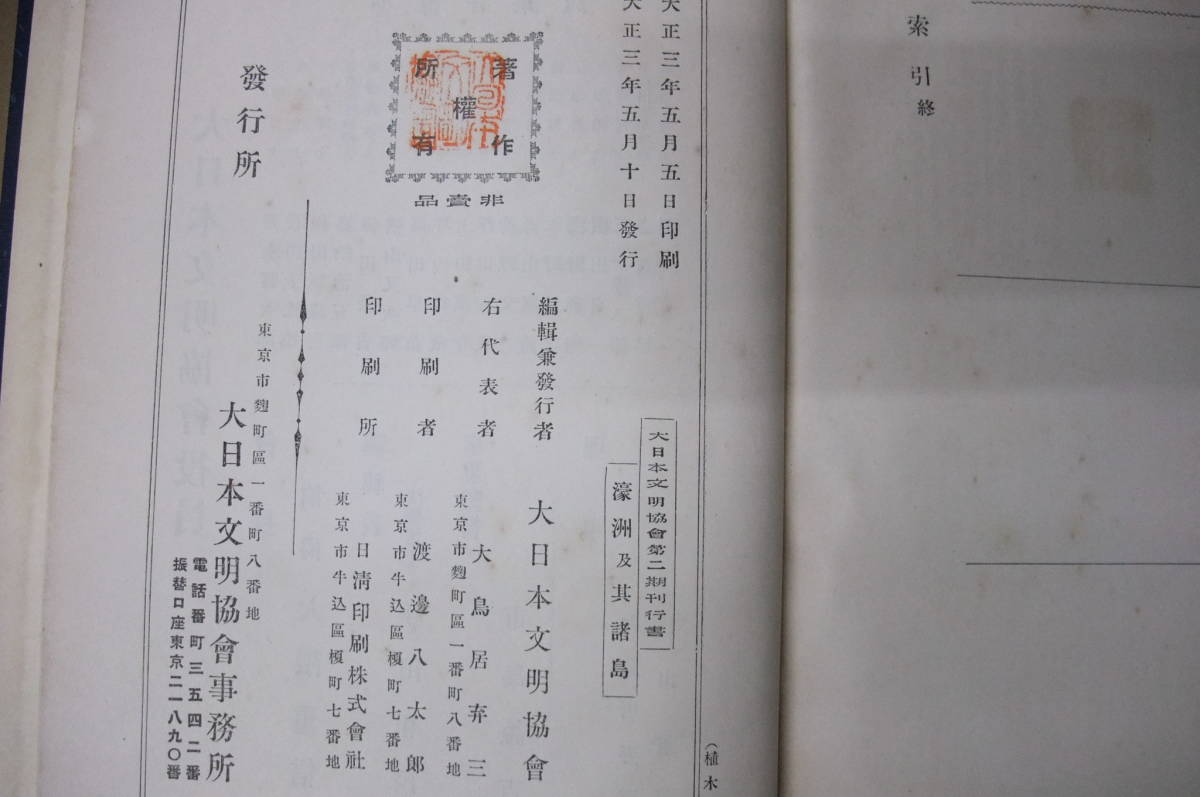 索引終
大正三年五月五日印刷
大正三年五月十日發行
大日本文明協會第二期刊行書
濠洲及其諸島
(植木
著作
權
所有
非賣品
編輯兼發行者
大日本文明協會
右代表者
東京市麴町區一番町八番地
大鳥居弃三
印刷者
東京市牛込區榎町七番地
渡邊八太郎
印刷所
東京市牛込區榎町七番地
日淸印刷株式會社
發行所
東京市麴町區一番町八番地
大日本文明協會事務所
電話番町三五四二番
振替口座東京二一八九〇番